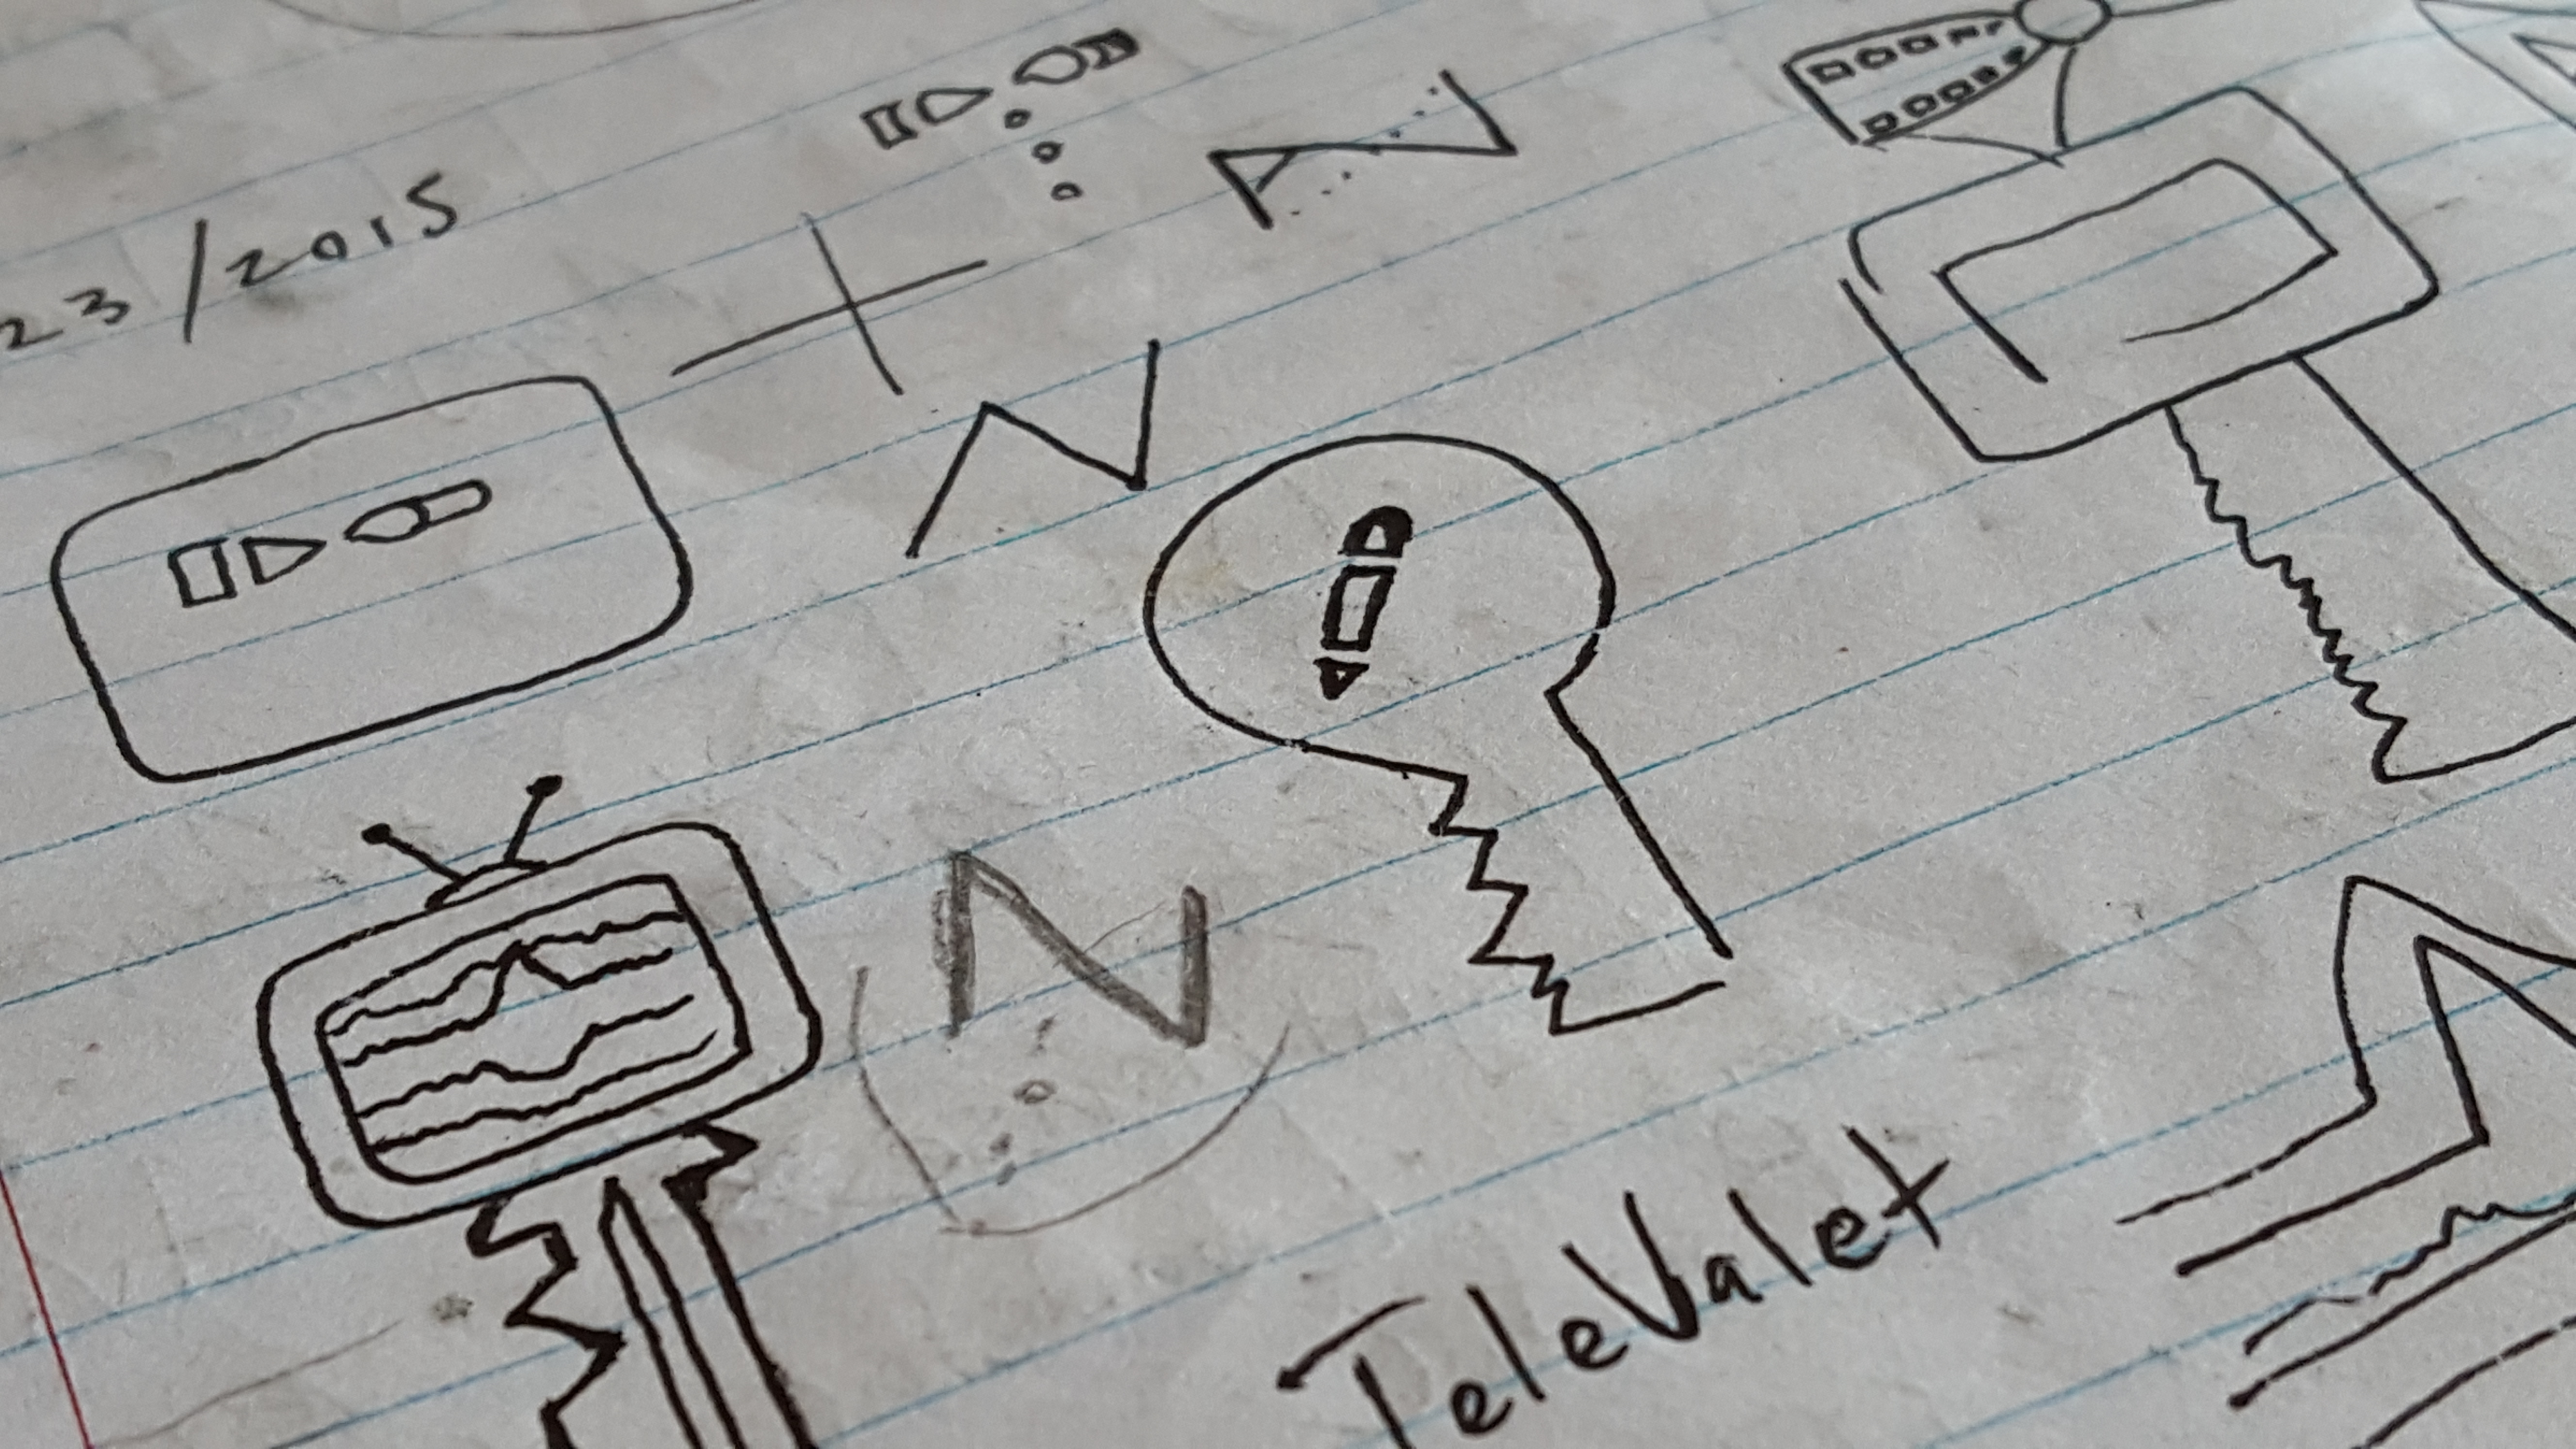 23/2015
N
N
N
TeleValet